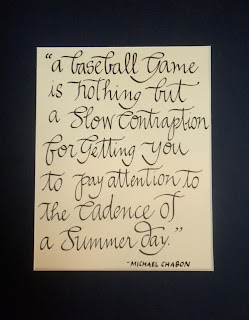 "a baseball Game
is nothing but
a Slow Contraption
for Getting you
to pay attention to
the Cadence of
a Summer day."
-MICHAEL CHABON